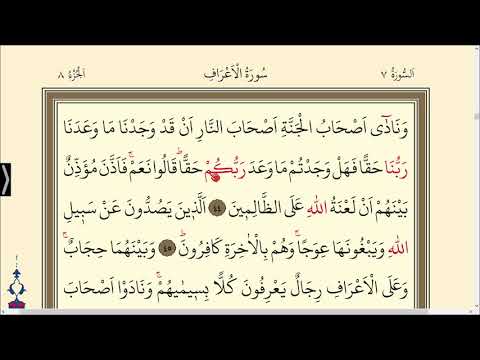 اَلسُّورَةُ ٧ سُورَةُ الْاَعْرَافِ اَلْجُزْءُ ٨
وَنَادٰٓى اَصْحَابُ الْجَنَّةِ اَصْحَابَ النَّارِ اَنْ قَدْ وَجَدْنَا مَا وَعَدَنَا
رَبُّنَا حَقًّا فَهَلْ وَجَدْتُمْ مَا وَعَدَ رَبُّكُمْ حَقًّاۜ قَالُوا نَعَمْۚ فَاَذَّنَ مُؤَذِّنٌ
بَيْنَهُمْ اَنْ لَعْنَةُ اللّٰهِ عَلَى الظَّالِمِينَ ٤٤ اَلَّذِينَ يَصُدُّونَ عَنْ سَبِيلِ
اللّٰهِ وَيَبْغُونَهَا عِوَجًاۚ وَهُمْ بِالْاٰخِرَةِ كَافِرُونَۜ ٤٥ وَبَيْنَهُمَا حِجَابٌۚ
وَعَلَى الْاَعْرَافِ رِجَالٌ يَعْرِفُونَ كُلًّا بِسِيمٰيهُمْۚ وَنَادَوْا اَصْحَابَ